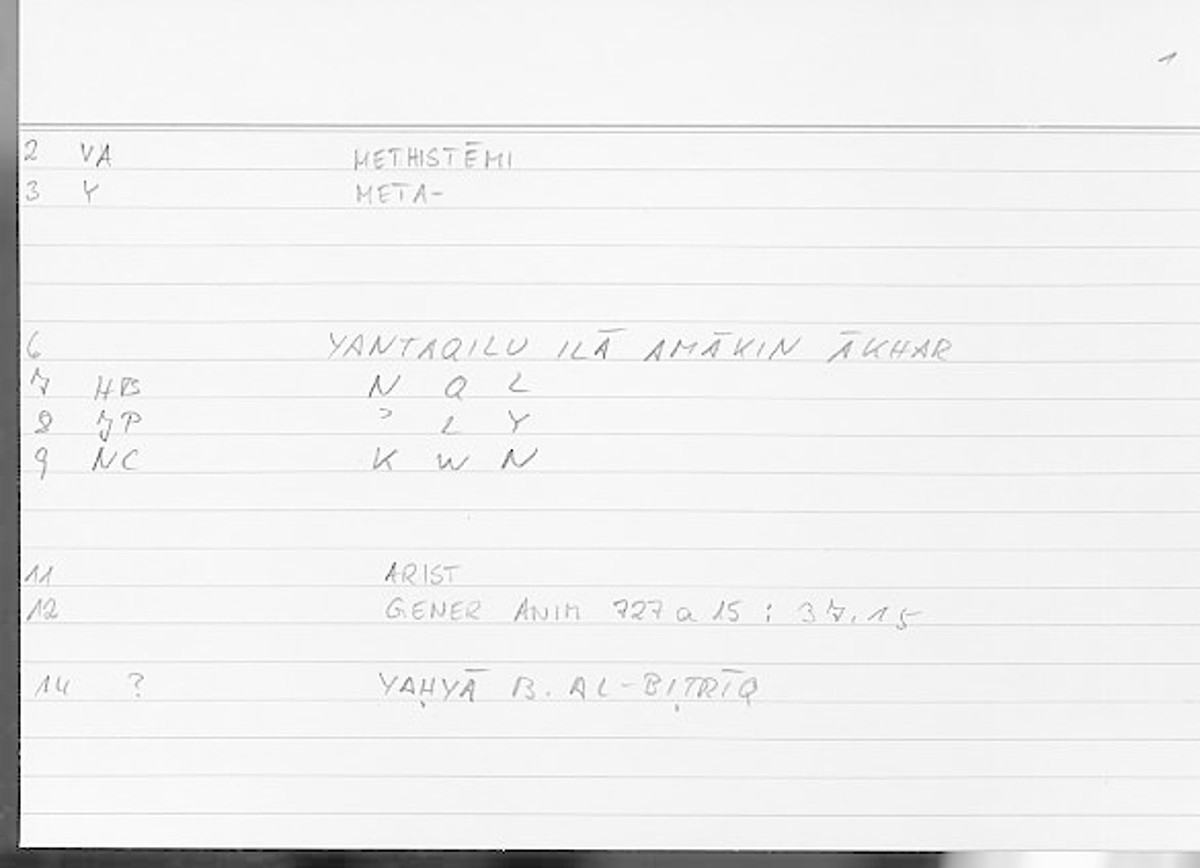 1
2 VA METHISTĒMI
3 Y META-
6 YANTAQILU ILĀ AMĀKIN ĀKHAR
7 HB N Q L
8 JP ʾ L Y
9 NC K W N
11 ARIST
12 GENER ANIM 727 a 15 ; 37.15
14 ? YAḤYĀ B. AL-BIṬRĪQ